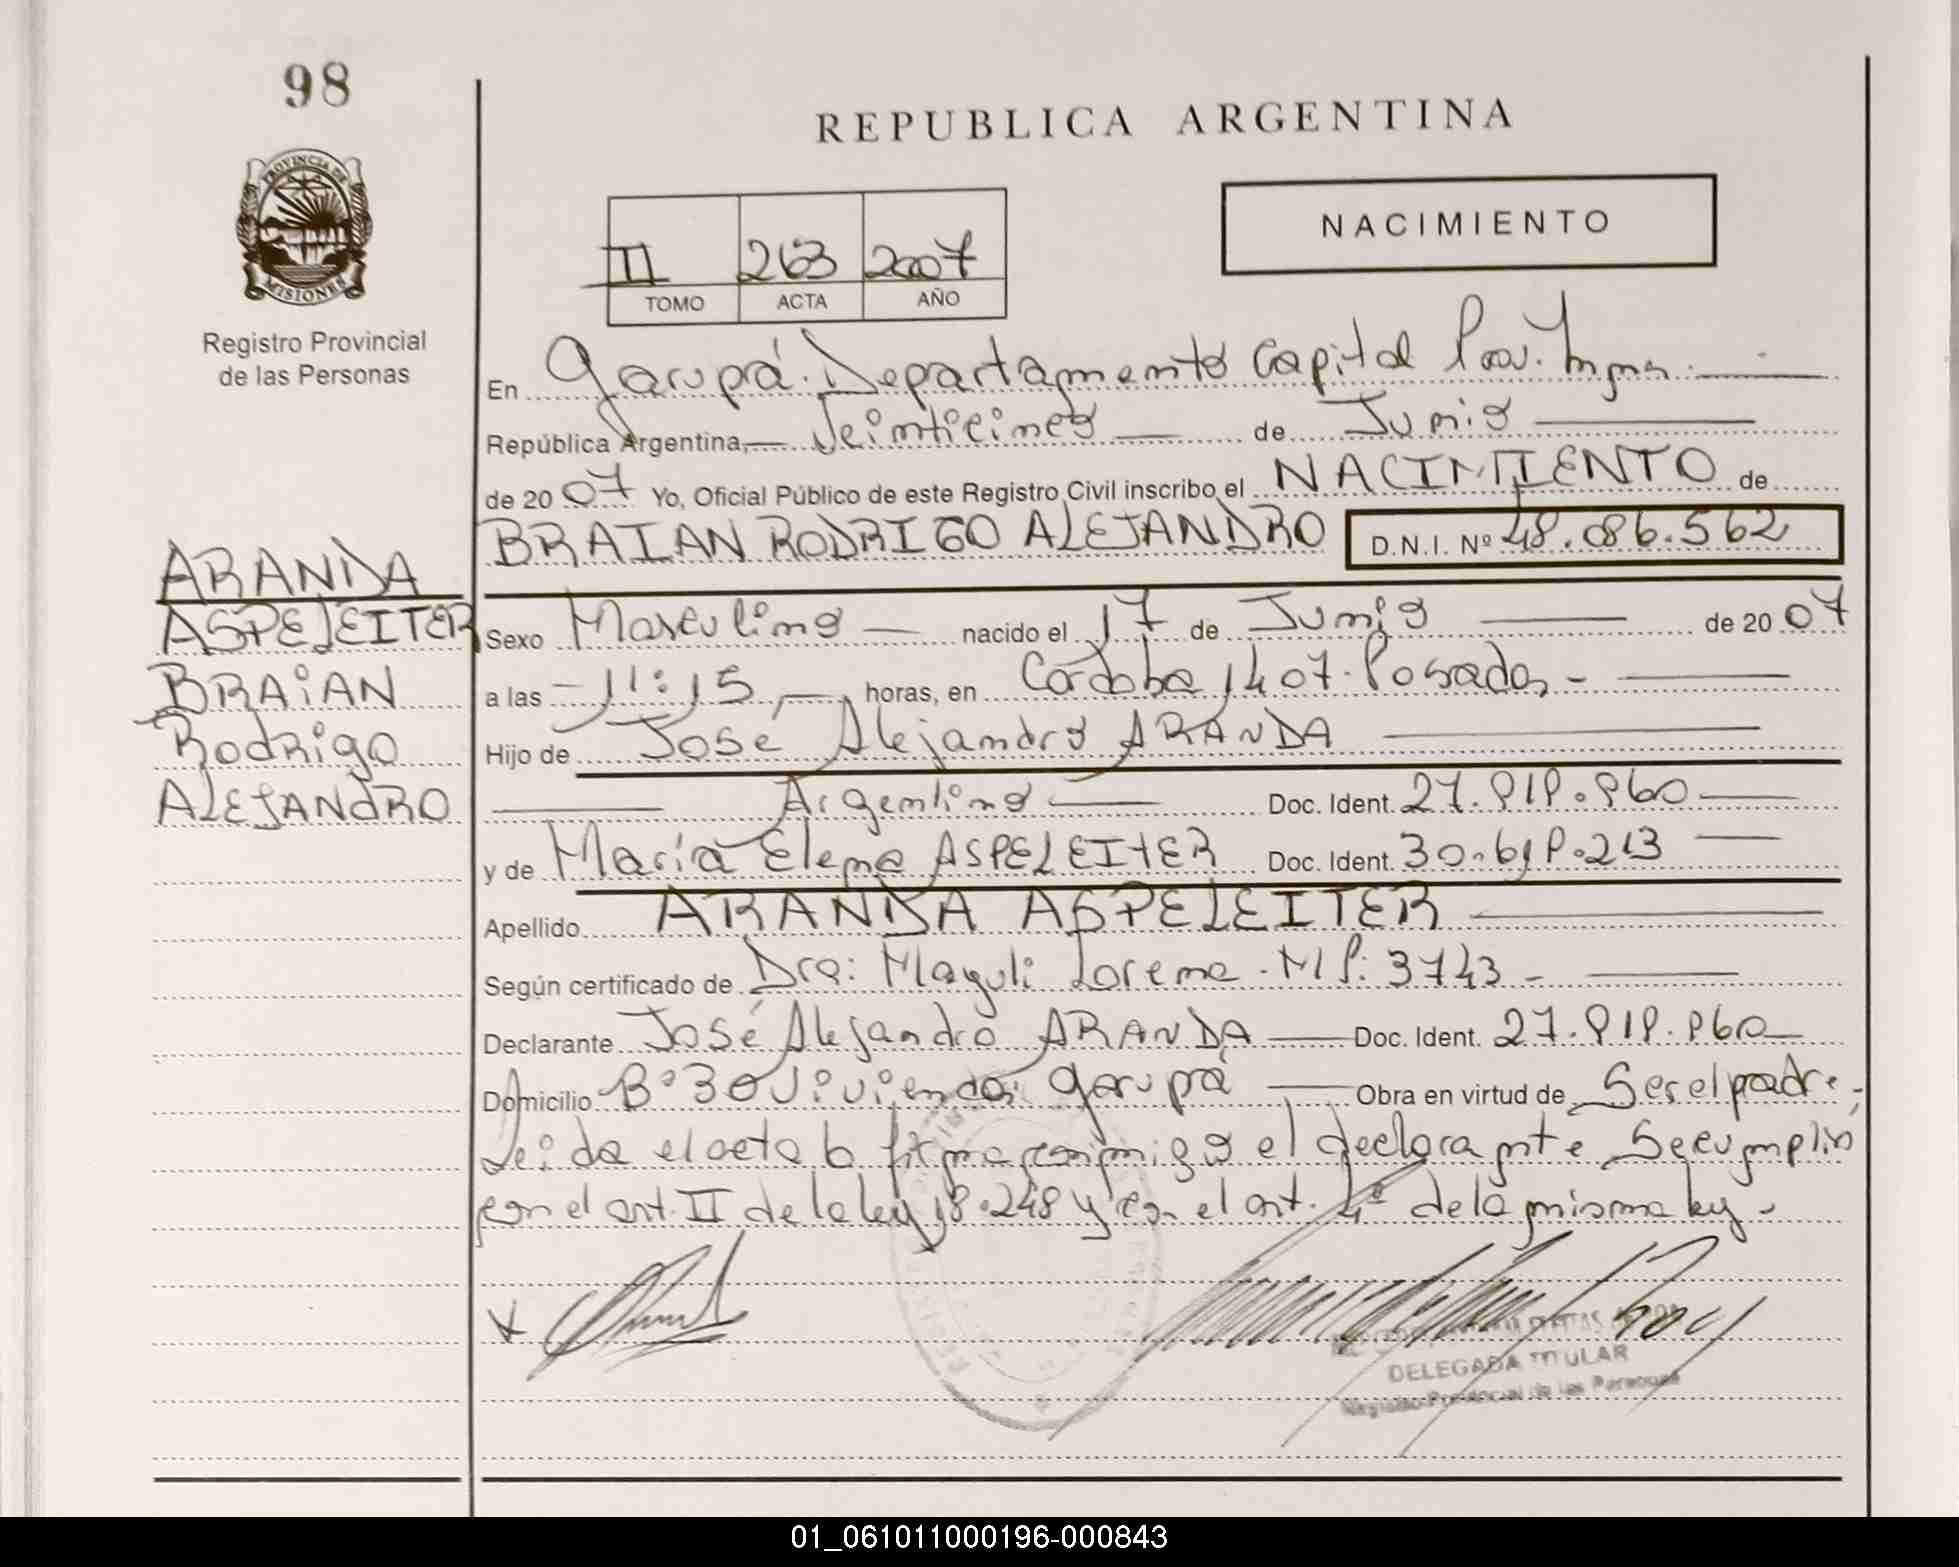 98
REPUBLICA ARGENTINA
PROVINCIA DE MISIONES
Registro Provincial
de las Personas
NACIMIENTO
II 263 2007
TOMO ACTA AÑO
En Garupá. Departamento Capital Prov. Mnes.
República Argentina, Veinticinco de Junio
de 2007 Yo, Oficial Público de este Registro Civil inscribo el NACIMIENTO de
BRAIAN RODRIGO ALEJANDRO D.N.I. Nº 48.086.562
ARANDA
ASPELEITER
BRAiAN
Rodrigo
ALEJANDRO
Sexo Masculino nacido el 17 de Junio de 2007
a las 11:15 horas, en Córdoba 1407. Posadas -
Hijo de José Alejandro ARANDA
Argentino Doc. Ident.
y de María Elena ASPELEITER Doc. Ident.
Apellido ARANDA ASPELEITER
Según certificado de Dra: Lorena. MP: 3743 -
Declarante José Alejandro ARANDA Doc. Ident.
Domicilio Bº 30 Viviendas Garupá Obra en virtud de Ser el padre.
Leida el acta la firma conmigo el declarante Se cumplio
con el art. II de la ley 18.248 y con el art. 4º de la misma ley.
DELEGADA TITULAR
Registro Provincial de las Personas
01_061011000196-000843